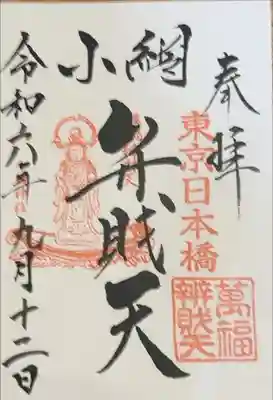 奉拝
東京日本橋
萬福
辨財天
小網
弁財天
令和六年九月十二日